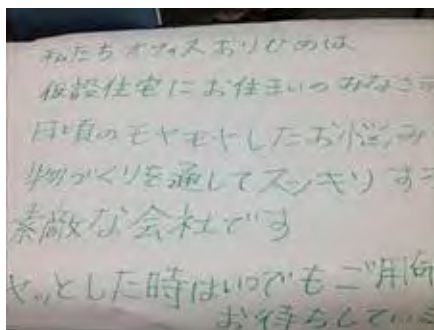 私たちオフィスおりひめは
仮設住宅にお住まいのみなさ
日頃のモヤモヤしたお悩み
物づくりを通してスッキリする
素敵な会社です
ヤッとした時はいつでもご用命
お待ちしてい